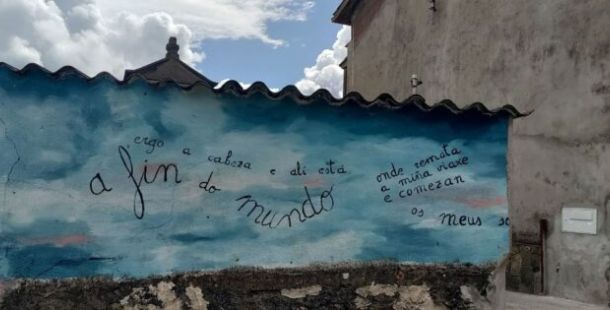 ergo a cabeza e alí está
a fin do mundo
onde remata
a miña viaxe
e comezan
os meus so